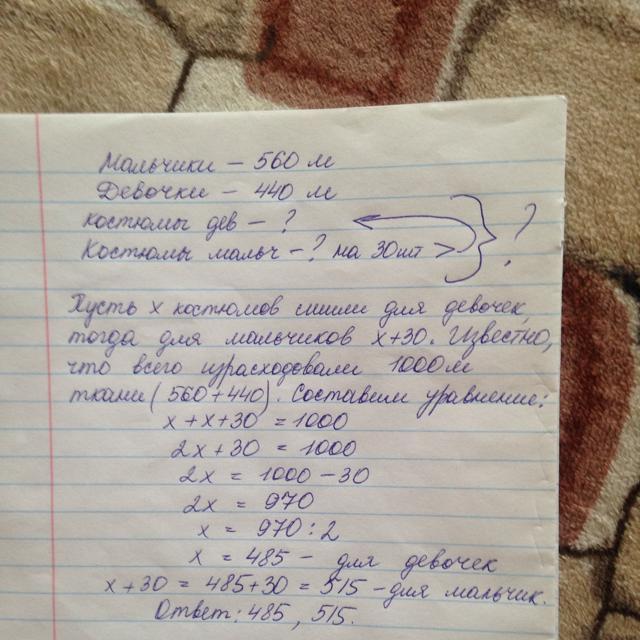 Мальчики – 560 м
Девочки – 440 м
костюмы дев – ?
Костюмы мальч – ? на 30шт > } ?
Пусть х костюмов сшили для девочек,
тогда для мальчиков х+30. Известно,
что всего израсходовали 1000м
ткани (560+440). Составим уравнение:
х + х + 30 = 1000
2х + 30 = 1000
2х = 1000 – 30
2х = 970
х = 970 : 2
х = 485 – для девочек
х + 30 = 485+30 = 515 – для мальчик.
Ответ: 485, 515.